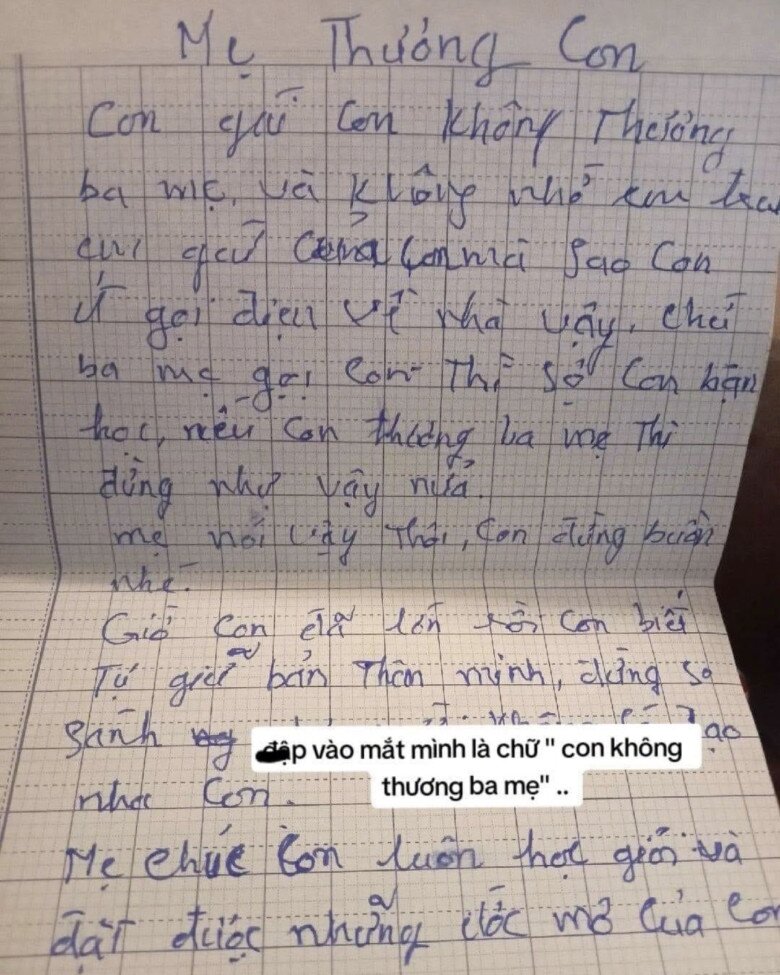 Mẹ Thương Con
Con gái Con không Thương
ba mẹ, và không nhớ em trai
em gái Của Con mà Sao Con
ít gọi điện về nhà vậy, chứ
ba mẹ gọi Con Thì Sợ Con bận
học, nếu Con thương ba mẹ Thì
đừng như vậy nữa.
mẹ nói vậy Thôi, Con đừng buồn
nhé.
Giờ Con đã lớn rồi Con biết
Tự giữ bản Thân mình, đừng so
Sánh
đập vào mắt mình là chữ " con không
thương ba mẹ" ..
Con.
Mẹ chúc Con luôn học giỏi và
đạt được những ước mơ của Con